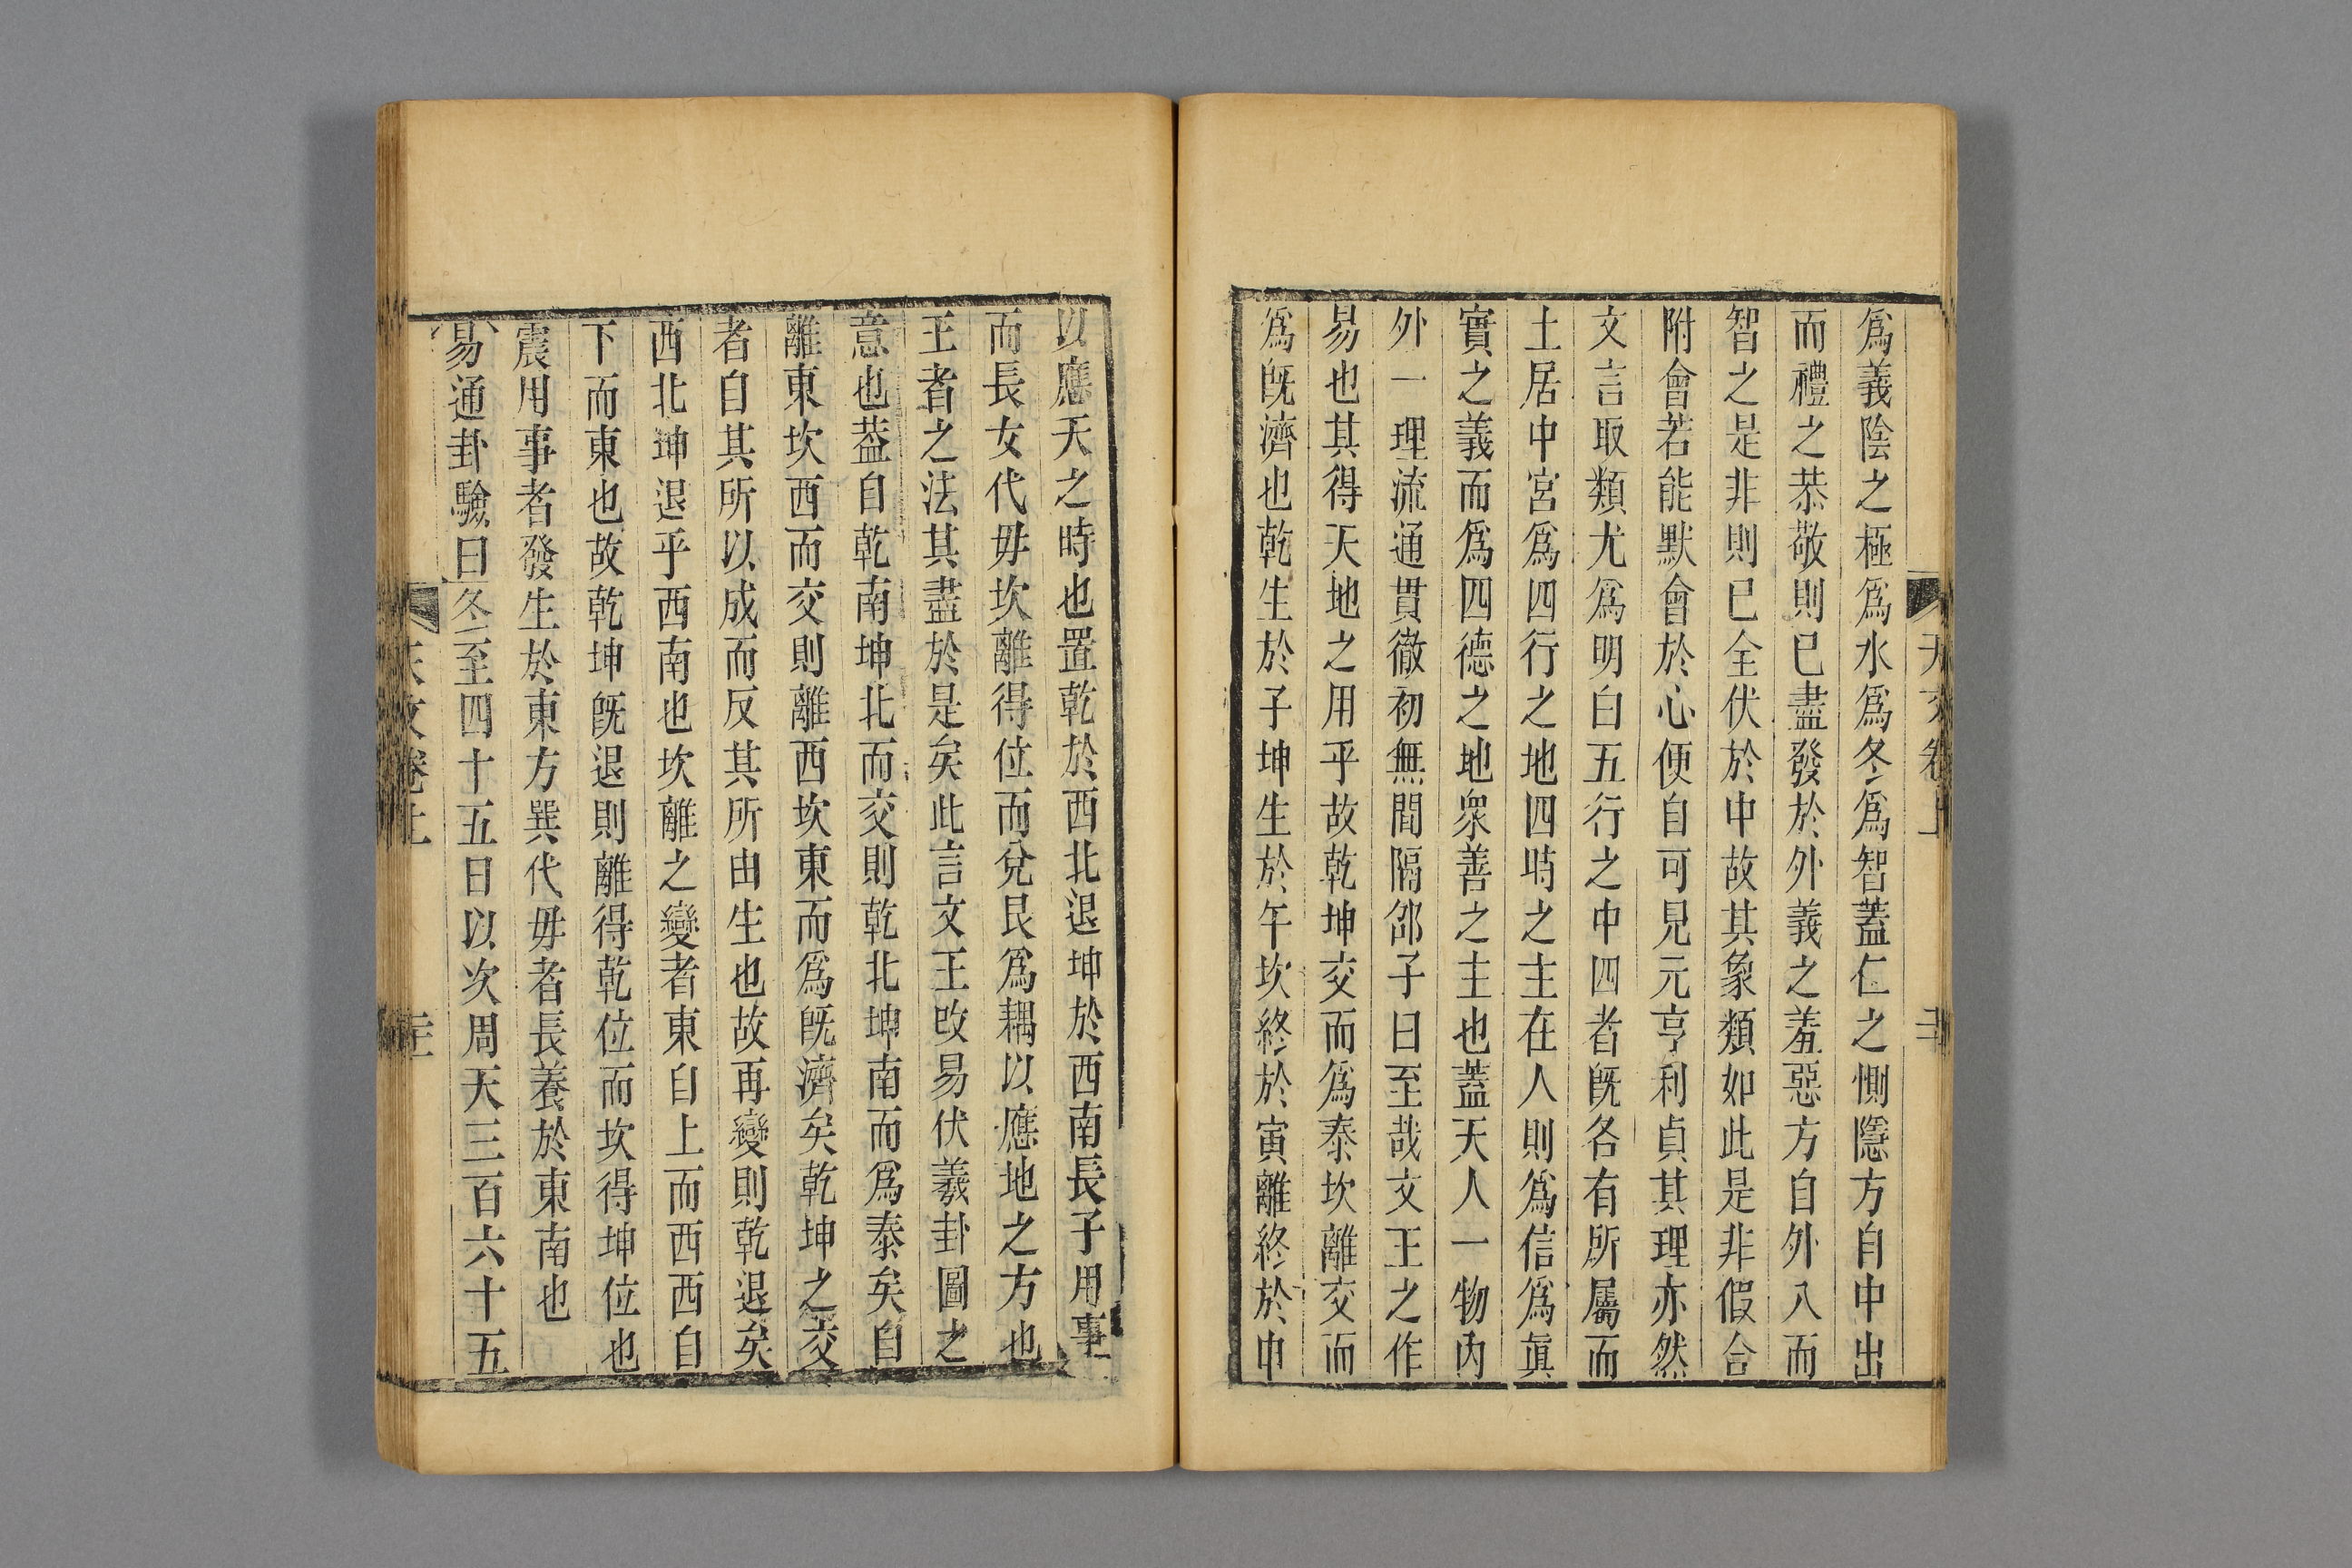 爲義陰之極爲水爲冬爲智蓋仁之惻隱方自中出
而禮之恭敬則已盡發於外義之羞惡方自外入而
智之是非則已全伏於中故其象類如此是非假合
附會若能默會於心便自可見元亨利貞其理亦然
文言取類尤爲明白五行之中四者旣各有所屬而
土居中宮爲四行之地四時之主在人則爲信爲眞
實之義而爲四德之地衆善之主也蓋天人一物內
外一理流通貫徹初無間隔邵子曰至哉文王之作
易也其得天地之用乎故乾坤交而爲泰坎離交而
爲旣濟也乾生於子坤生於午坎終於寅離終於申
以應天之時也置乾於西北退坤於西南長子用事
而長女代毋坎離得位而兌艮爲耦以應地之方也
王者之法其盡於是矣此言文王改易伏羲卦圖之
意也葢自乾南坤北而交則乾北坤南而爲泰矣自
離東坎西而交則離西坎東而爲旣濟矣乾坤之交
者自其所以成而反其所由生也故再變則乾退矣
西北坤退乎西南也坎離之變者東自上而西西自
下而東也故乾坤旣退則離得乾位而坎得坤位也
震用事者發生於東方巽代毋者長養於東南也
易通卦驗曰冬至四十五日以次周天三百六十五
天文卷上